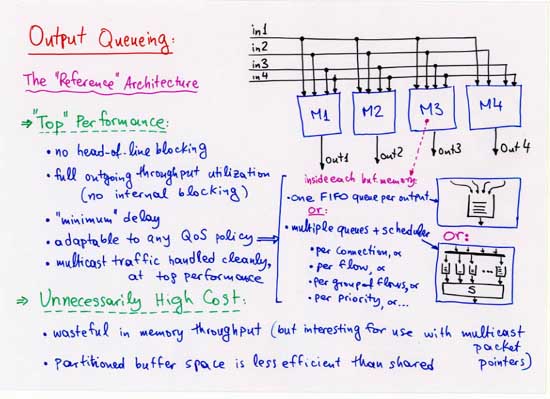 Output Queueing:
The "Reference" Architecture
in1
in2
in3
in4
M1 M2 M3 M4
out1 out2 out3 Out4
⇒ "Top" Performance:
• no head-of-line blocking
• full outgoing throughput utilization
(no internal blocking)
• "minimum" delay
• adaptable to any QoS policy ⇒
• multicast traffic handled cleanly,
at top performance
inside each buf. memory:
• one FIFO queue per output
or:
• multiple queues + scheduler
• per connection, or
• per flow, or
• per group of flows, or
• per priority, or...
Or:
S
⇒ Unnecessarily High Cost:
• wasteful in memory throughput (but interesting for use with multicast
packet
pointers)
• partitioned buffer space is less efficient than shared